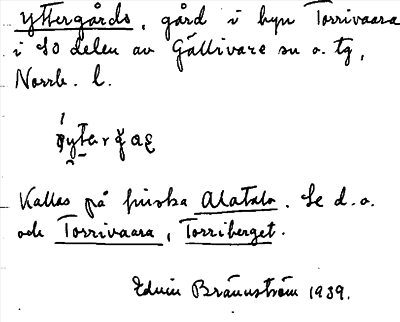 Yttergårds, gård i byn Torrivaara
i SO delen av Gällivare sn o. tg,
Norrb. l.
Kallas på finska Alatalo. Se d.o.
och Torrivaara, Torriberget.
Edvin Brännström 1939.